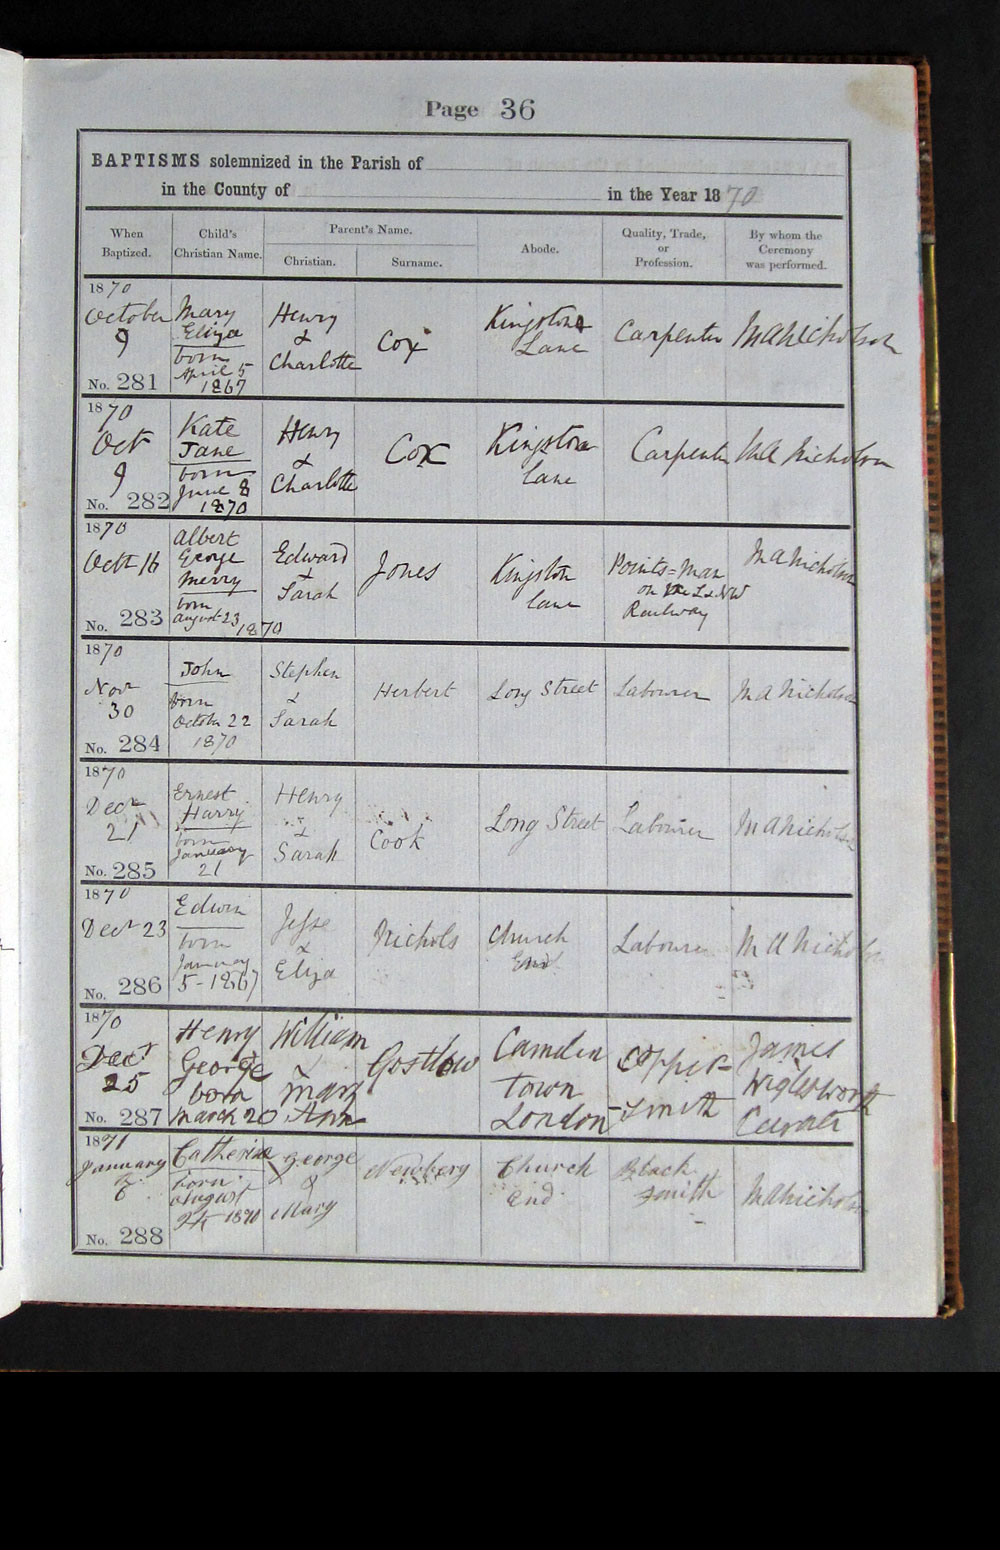 Page 36
BAPTISMS solemnized in the Parish of
in the County of in the Year 1870
When Baptized.
Child's Christian Name.
Parent's Name.
Christian.
Surname.
Abode.
Quality, Trade, or Profession.
By whom the Ceremony was performed.
1870
October
9
No. 281
Mary
Eliza
born
April 5
1867
Henry
&
Charlotte
Cox
Kingston
Lane
Carpenter
M A Nicholson
1870
Oct
9
No. 282
Kate
Jane
born
June 8
1870
Henry
&
Charlotte
Cox
Kingston
Lane
Carpenter
M A Nicholson
1870
Octr 16
No. 283
Albert
George
Merry
born
August 23
1870
Edward
&
Sarah
Jones
Kingston
Lane
Points=Man
on the L & NW
Railway
M A Nicholson
1870
Novr
30
No. 284
John
born
October 22
1870
Stephen
&
Sarah
Herbert
Long Street
Labourer
M A Nicholson
1870
Decr
21
No. 285
Ernest
Harry
born
January
21
Henry
&
Sarah
Cook
Long Street
Labourer
M A Nicholson
1870
Decr 23
No. 286
Edwin
born
January
5 - 1867
Jesse
&
Eliza
Nichols
Church
End
Labourer
M A Nicholson
1870
Decr
25
No. 287
Henry
George
born
March 20
William
Mary
Ann
Gostlow
Camden
Town
London
Copper
Smith
James
Wiglesworth
Curate
1871
January
8
No. 288
Catherine
born
August
24 1870
George
&
Mary
Newberry
Church
End
Black
Smith
M A Nicholson